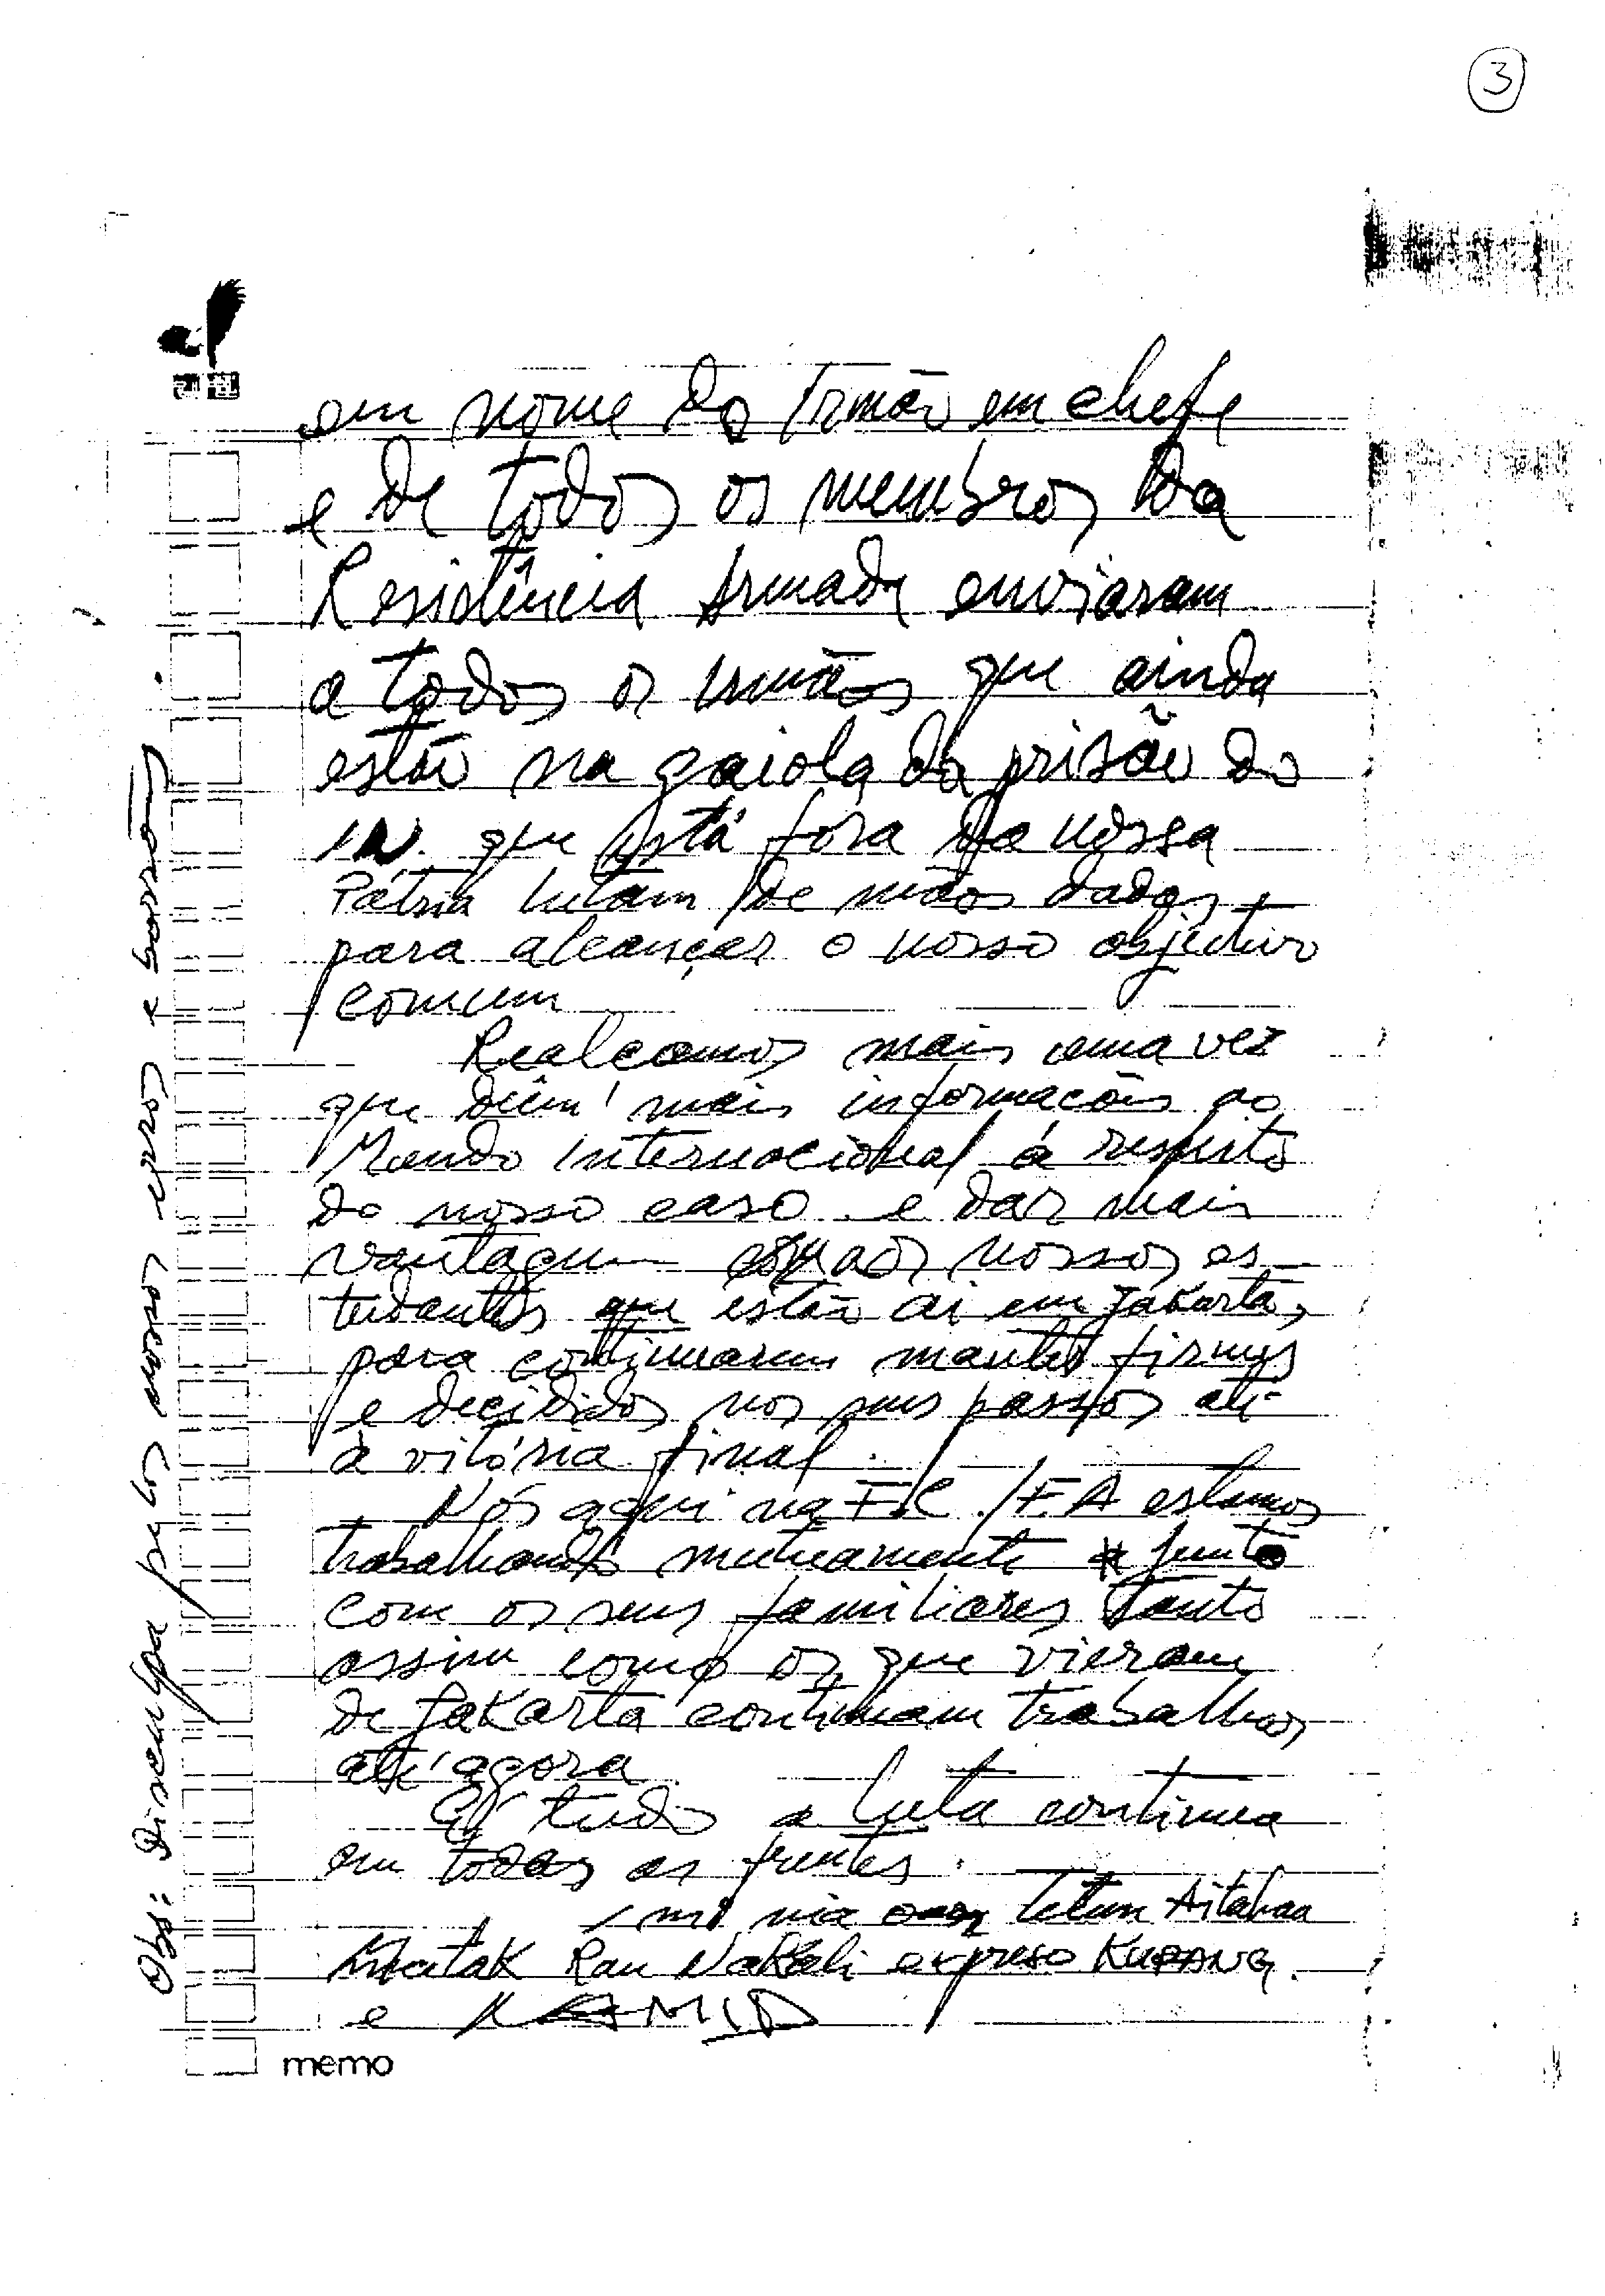 3
em nome do Irmão em chefe
e de todos os membros da
Resistência Armada enviaram
a todos os irmãos que ainda
estão na gaiola da prisão do
in. que está fora da nossa
Pátria lutam de mãos dadas
para alcançar o nosso objectivo
comum
Realcamos mais uma vez
que dêm mais informacões ao
Mundo Internacional á respeito
do nosso caso e dar mais
vantagem aos nossos es
tudantes que estão ai em Jakarta,
para continuarem mantes firmes
e decididos nos seus passos até
à vitória final.
Nós aqui na FC/FA estamos
trabalhando mutuamente junto
com os seus familiares tanto
assim como os que vieram
de Jakarta continuam trabalhos
até agora.
É tudo a luta continua
em todas as frentes.
nia oan Tetum Aitahan
Matak Ran Nakali expreso KUPANG.
e
Obs: Disculpa pelos nossos erros e borrão
memo